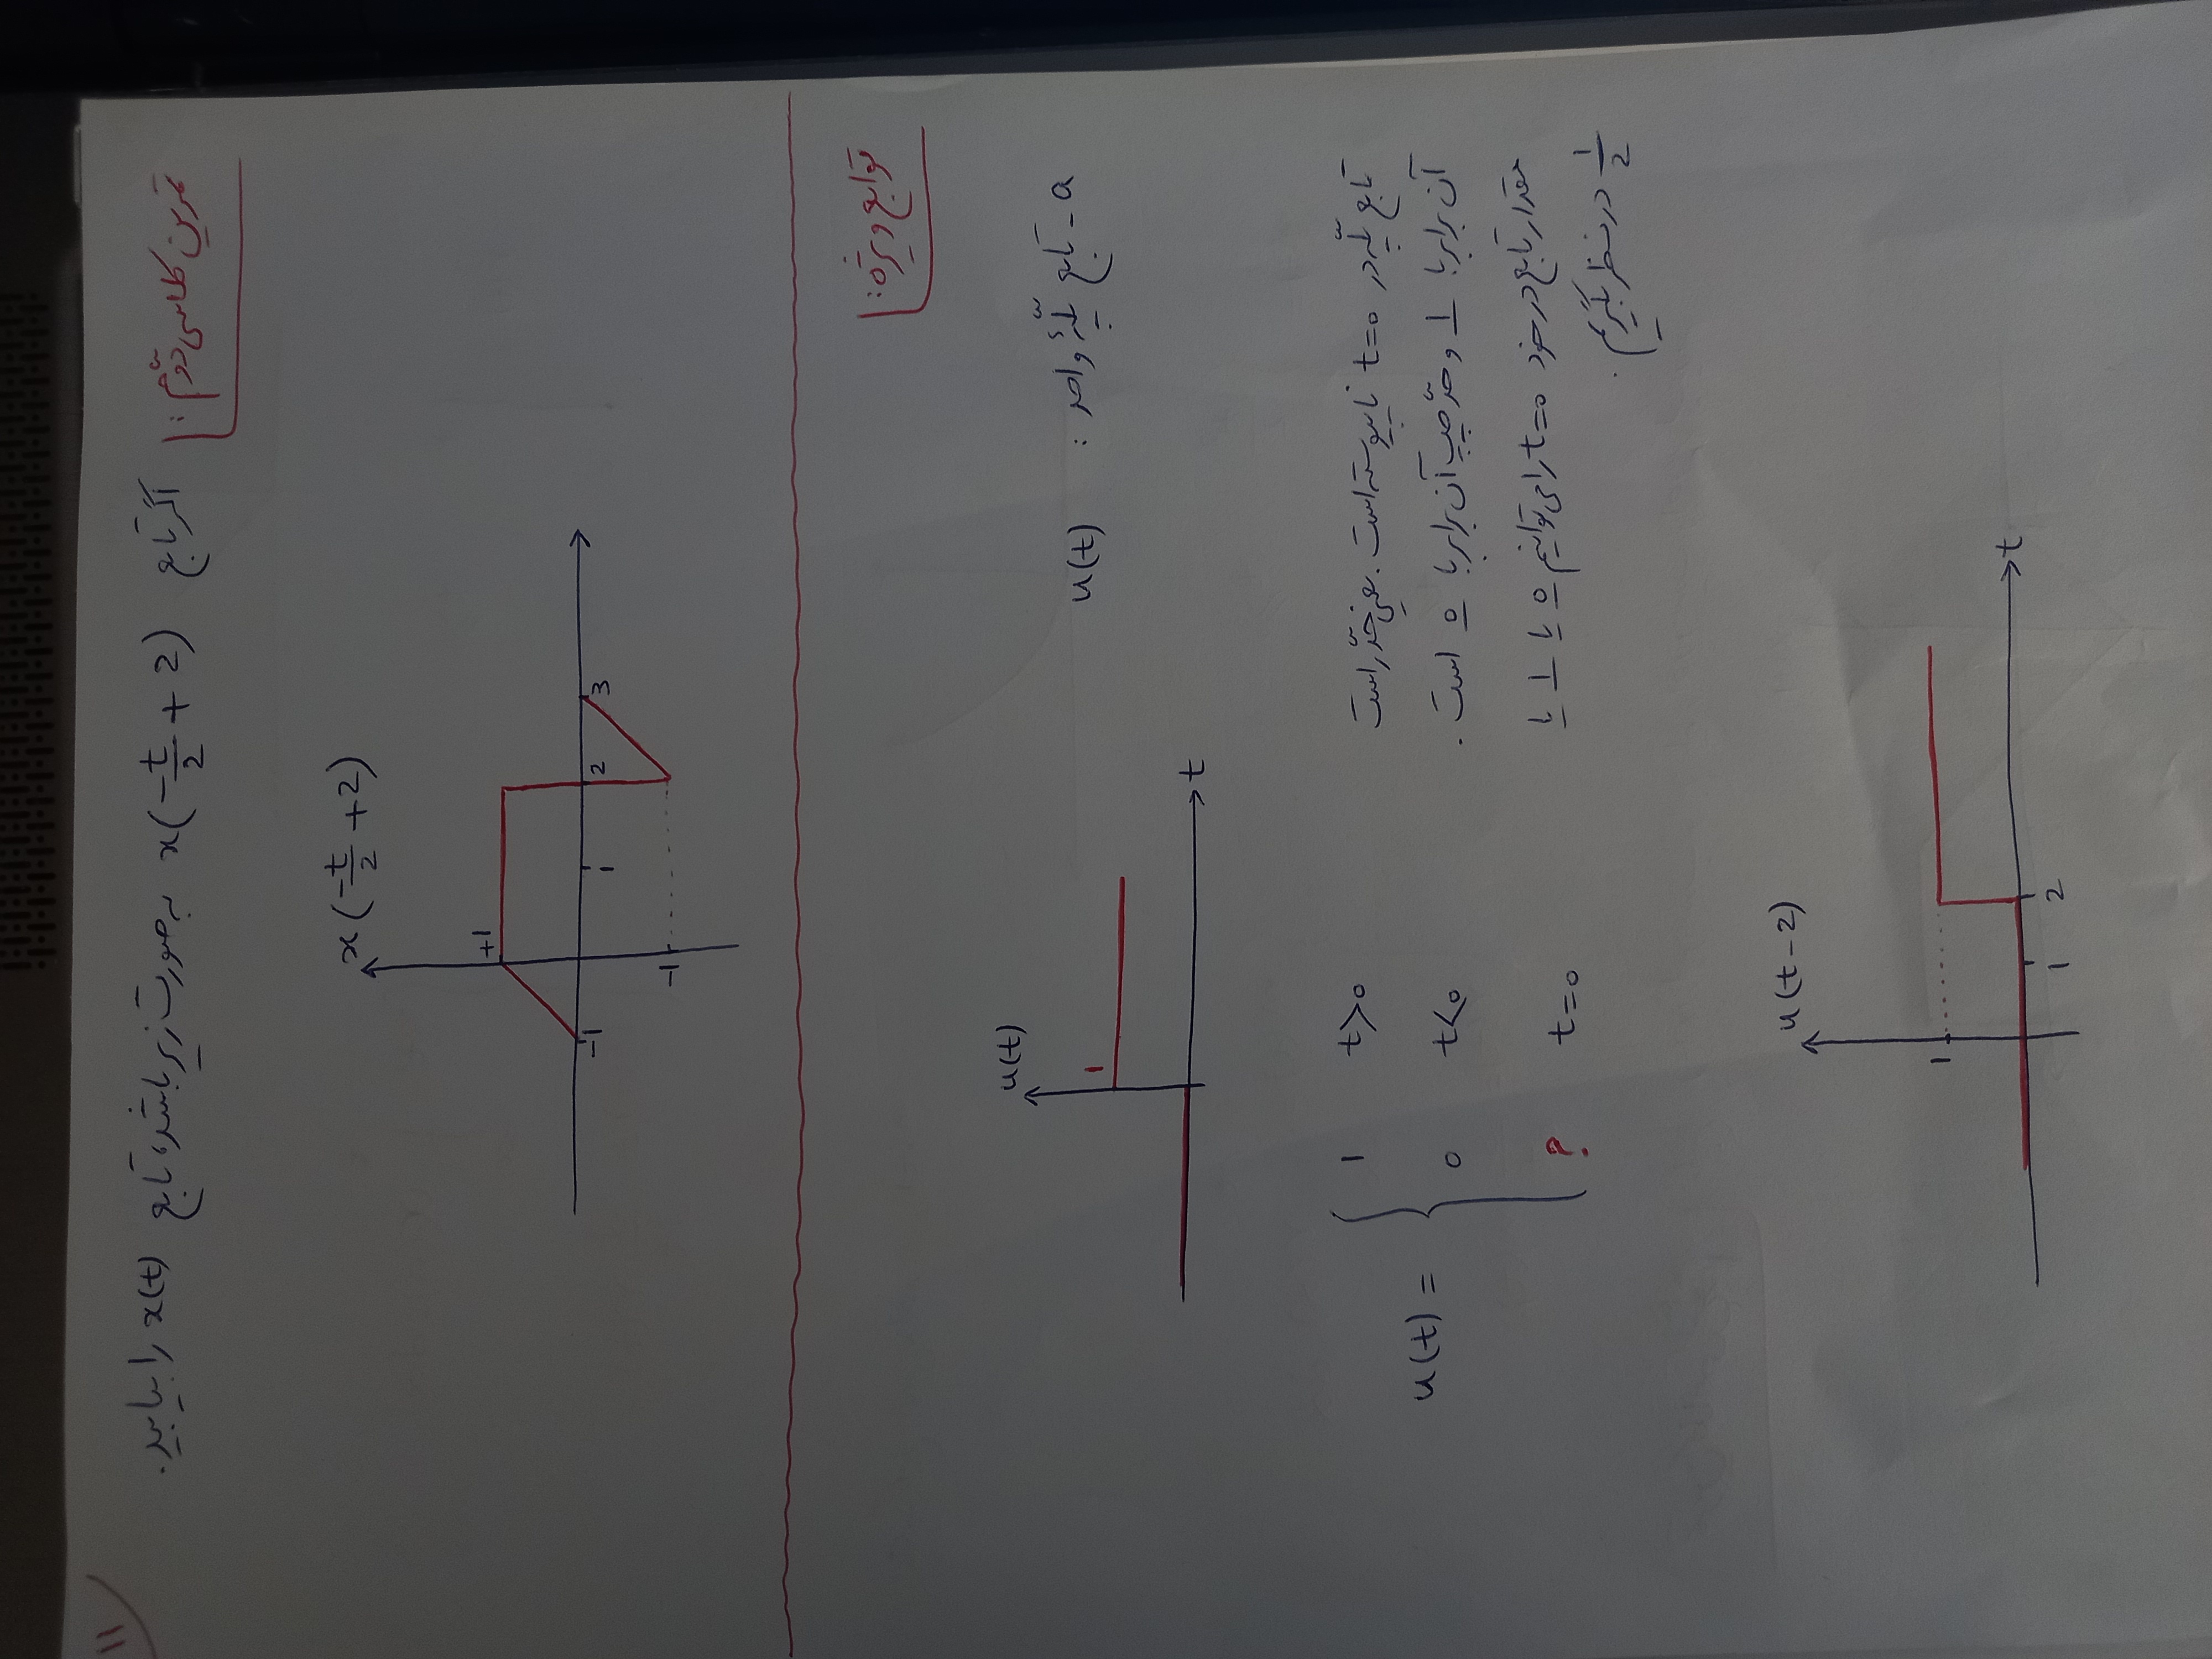 ۱۱
تمرین کلاسی دوّم: اگر تابع x(-t/2 + 2) به صورت زیر باشد، تابع x(t) را بیابید.
x(-t/2 + 2)
+1
-1 1 2 3
-1
توابع ویژه:
u(t)
a - تابع پلّهٔ واحد: u(t)
1
t
u(t) = { 1 t>0
0 t<0
? t=0
تابع پلّه در t=0 ناپیوسته است. یعنی حدّ راست
آن برابر با 1 و حدّ چپ آن برابر با 0 است.
مقدار تابع در خود t=0 را می‌توانیم 0 یا 1 یا
1/2 در نظر بگیریم.
u(t-2)
1
t
1 2